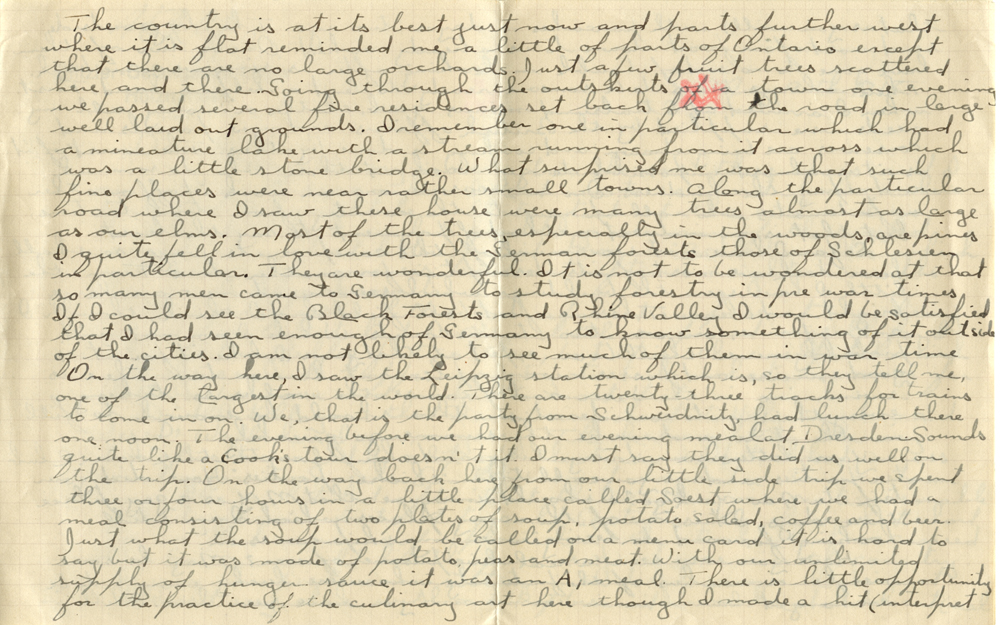 The country is at its best just now and parts further west
where it is flat reminded me a little of parts of Ontario except
that there are no large orchards, Just a few fruit trees scattered
here and there. Going through the outskirts of a town one evening
we passed several fine residences set back from the road in large
well laid out grounds. I remember one in particular which had
a mineature lake with a stream running from it across which
was a little stone bridge. What surprised me was that such
fine places were near rather small towns. Along the particular
road where I saw these house were many trees almost as large
as our elms. Most of the trees, especially in the woods, are pines
I quite fell in love with the German forests those of Schlesien
in particular. They are wonderful. It is not to be wondered at that
so many men came to Germany to study forestry in pre war times
If I could see the Black Forests and Rhine Valley I would be satisfied
that I had seen enough of Germany to know something of it outside
of the cities. I am not likely to see much of them in war time
On the way here, I saw the Leipzig station which is, so they tell me,
one of the largest in the world. There are twenty-three tracks for trains
to come in on. We, that is the party from Schweidnitz, had lunch there
one noon. The evening before we had our evening meal at Dresden. Sounds
quite like a Cook's tour doesn't it. I must say they did us well on
the trip. On the way back here from our little side trip we spent
three or four hours in a little place called Soest where we had a
meal consisting of two plates of soup, potato salad, coffee and beer.
Just what the soup would be called on a menu card it is hard to
say but it was made of potato, peas and meat. With our unlimited
supply of hunger sauce it was an A, meal. There is little opportunity
for the practice of the culinary art here though I made a hit (interpret